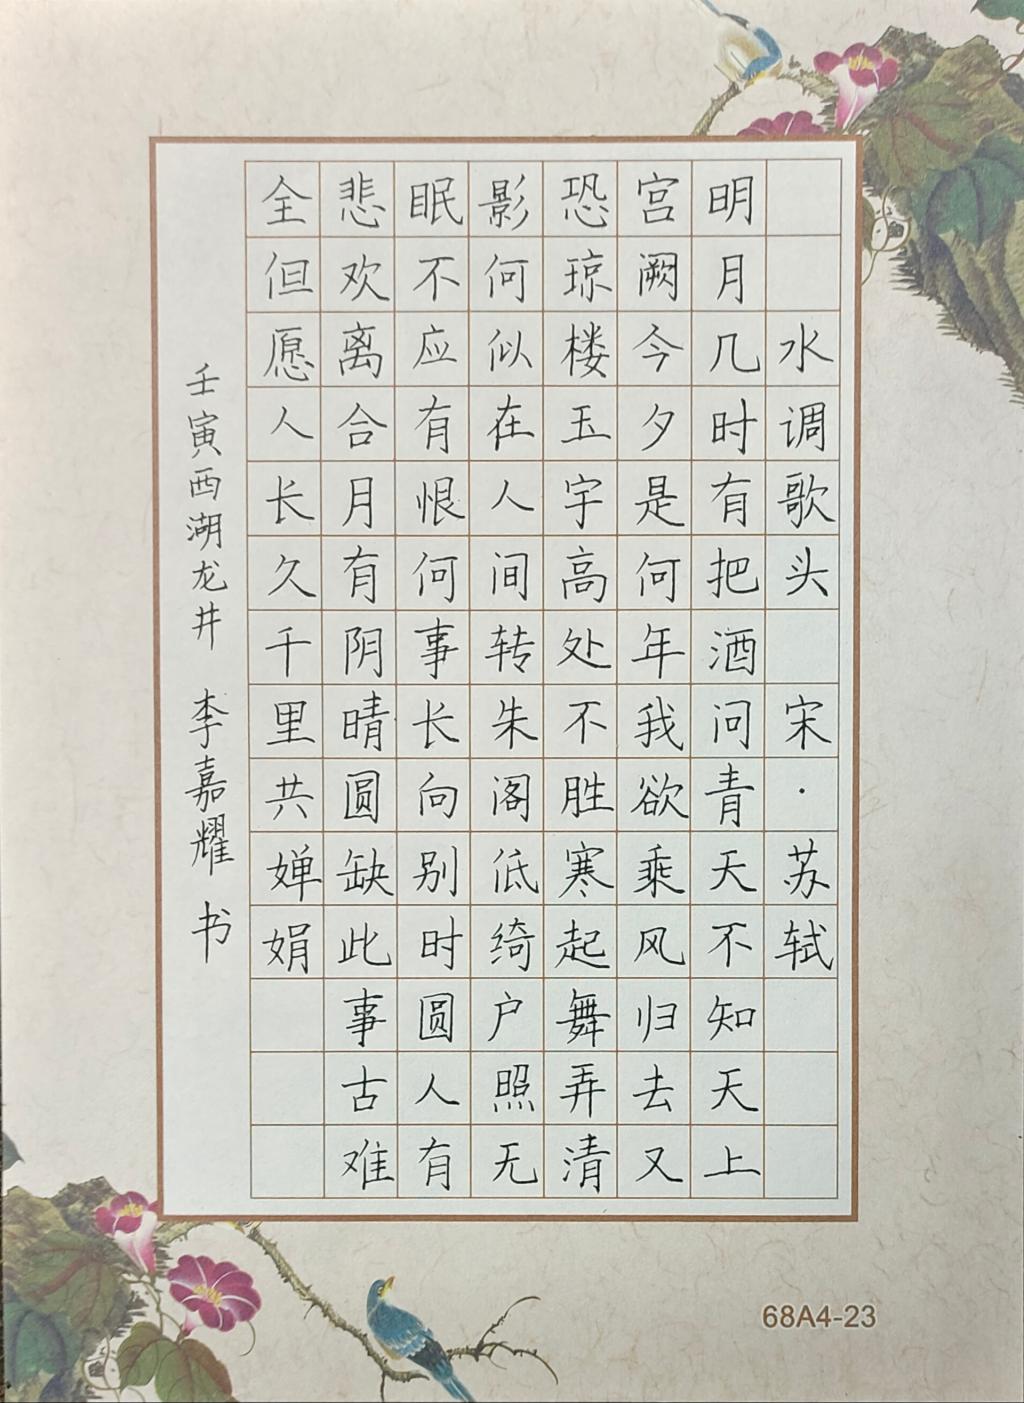 水调歌头 宋·苏轼
明月几时有把酒问青天不知天上
宫阙今夕是何年我欲乘风归去又
恐琼楼玉宇高处不胜寒起舞弄清
影何似在人间转朱阁低绮户照无
眠不应有恨何事长向别时圆人有
悲欢离合月有阴晴圆缺此事古难
全但愿人长久千里共婵娟
壬寅西湖龙井 李嘉耀 书
68A4-23